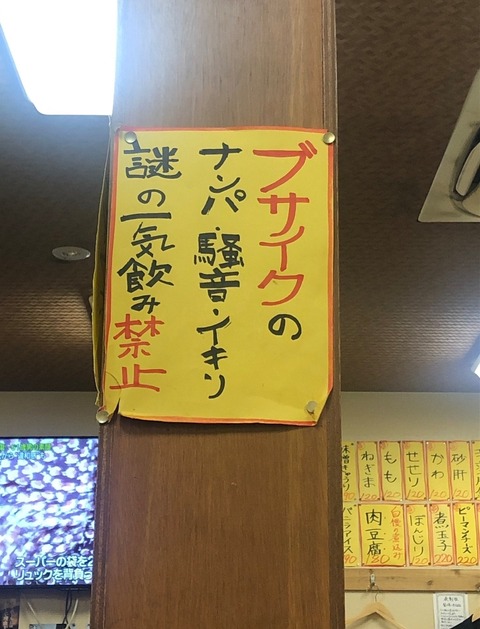 ブサイクの
ナンパ・騒音・イキリ
謎の一気飲み禁止
砂肝
かわ
120
せせり
120
もも
120
ねぎま
120
ピーマンチーズ
220
煮玉子
220
ぼんじり
120
肉豆腐
バニラアイス
スーパーの袋を2
リュックを背負っ